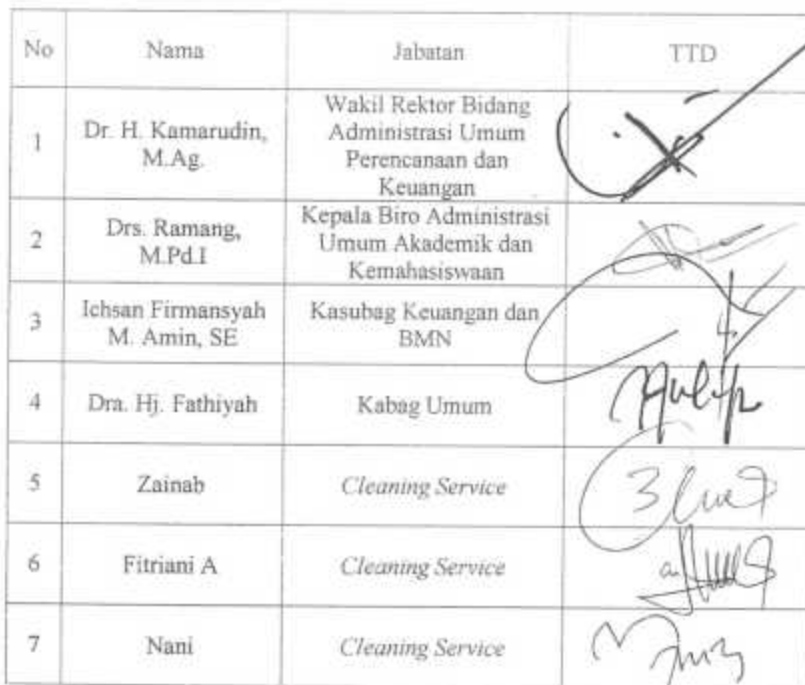 No Nama Jabatan TTD
1 Dr. H. Kamarudin, M.Ag. Wakil Rektor Bidang Administrasi Umum Perencanaan dan Keuangan
2 Drs. Ramang, M.Pd.I Kepala Biro Administrasi Umum Akademik dan Kemahasiswaan
3 Ichsan Firmansyah M. Amin, SE Kasubag Keuangan dan BMN
4 Dra. Hj. Fathiyah Kabag Umum
5 Zainab Cleaning Service
6 Fitriani A Cleaning Service
7 Nani Cleaning Service